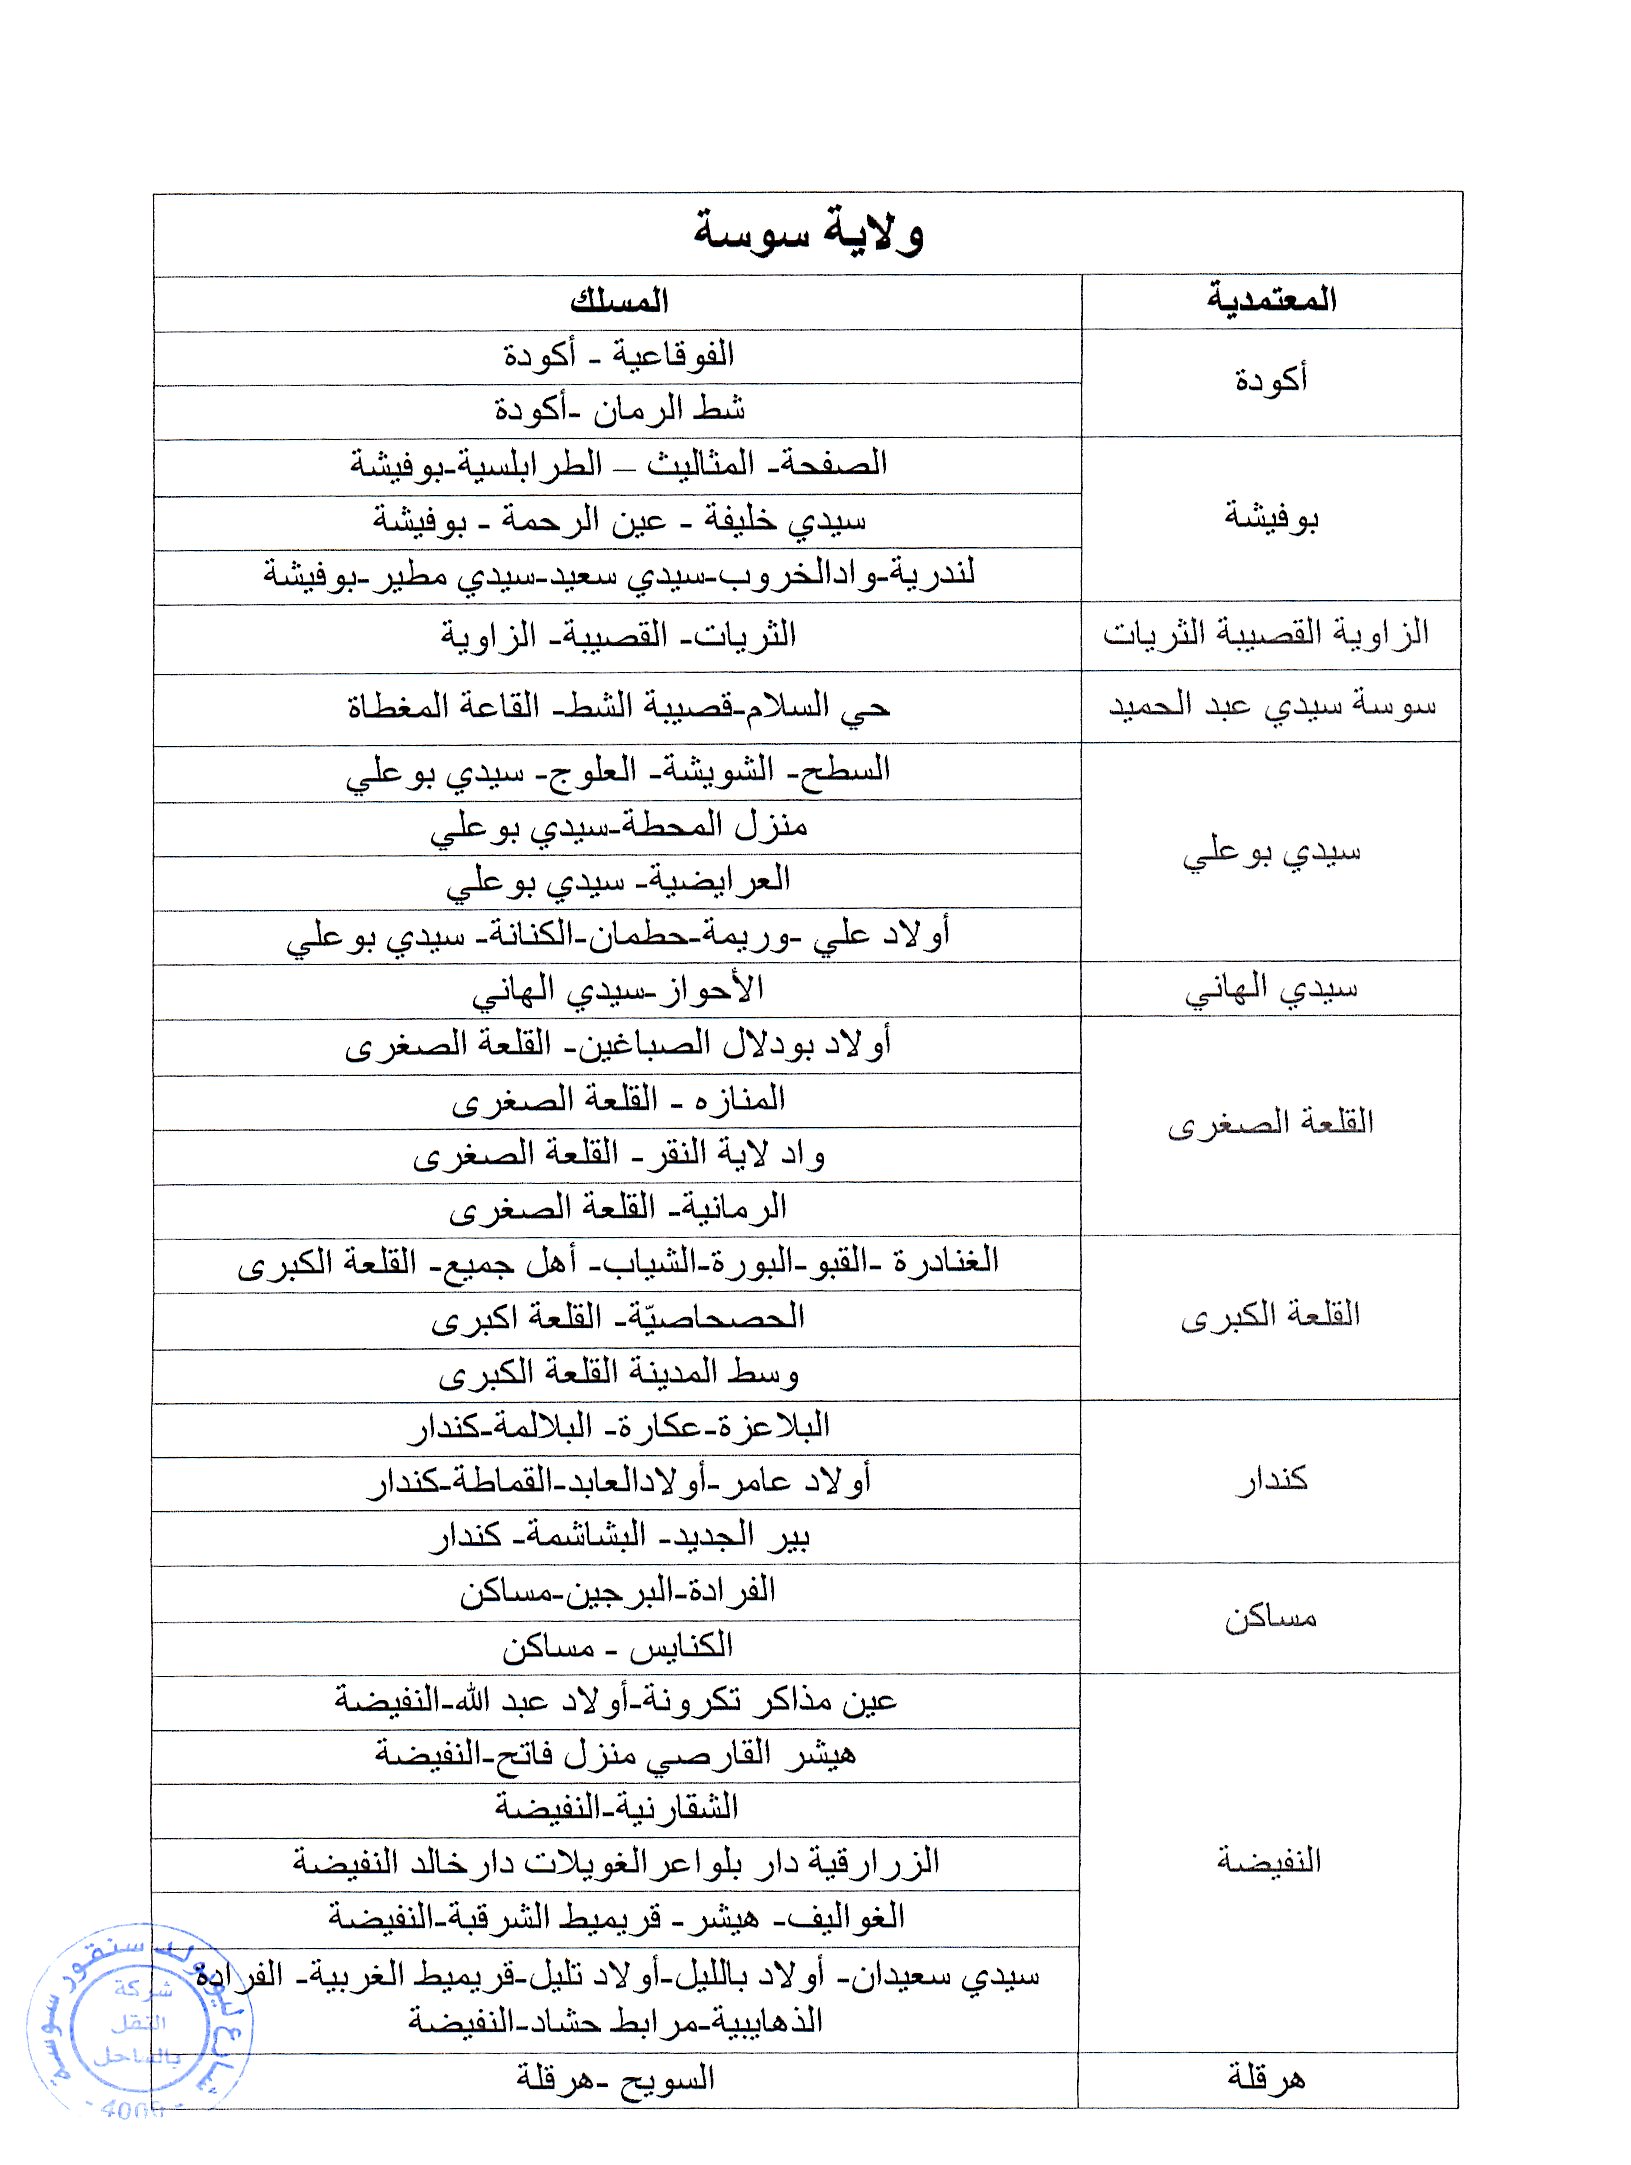 ولاية سوسة
المعتمدية
المسلك
أكودة
الفوقاعية - أكودة
شط الرمان -أكودة
بوفيشة
الصفحة- المثاليث – الطرابلسية-بوفيشة
سيدي خليفة - عين الرحمة - بوفيشة
لندرية-وادالخروب-سيدي سعيد-سيدي مطير-بوفيشة
الزاوية القصيبة الثريات
الثريات- القصيبة- الزاوية
سوسة سيدي عبد الحميد
حي السلام-قصيبة الشط- القاعة المغطاة
سيدي بوعلي
السطح- الشويشة- العلوج- سيدي بوعلي
منزل المحطة-سيدي بوعلي
العرايضية- سيدي بوعلي
أولاد علي -وريمة-حطمان-الكنانة- سيدي بوعلي
سيدي الهاني
الأحواز-سيدي الهاني
القلعة الصغرى
أولاد بودلال الصباغين- القلعة الصغرى
المنازه - القلعة الصغرى
واد لاية النقر- القلعة الصغرى
الرمانية- القلعة الصغرى
القلعة الكبرى
الغنادرة -القبو-البورة-الشياب- أهل جميع- القلعة الكبرى
الحصحاصيّة- القلعة اكبرى
وسط المدينة القلعة الكبرى
كندار
البلاعزة-عكارة- البلالمة-كندار
أولاد عامر-أولادالعابد-القماطة-كندار
بير الجديد- البشاشمة- كندار
مساكن
الفرادة-البرجين-مساكن
الكنايس - مساكن
النفيضة
عين مذاكر تكرونة-أولاد عبد الله-النفيضة
هيشر القارصي منزل فاتح-النفيضة
الشقارنية-النفيضة
الزرارقية دار بلواعرالغويلات دارخالد النفيضة
الغواليف- هيشر - قريميط الشرقبة-النفيضة
سيدي سعيدان- أولاد بالليل-أولاد تليل-قريميط الغربية- الفرادة
الذهايبية-مرابط حشاد-النفيضة
هرقلة
السويح -هرقلة
شارع ليوبولد سنقور سوسة
شركة
النقل
بالساحل
- 4000 -